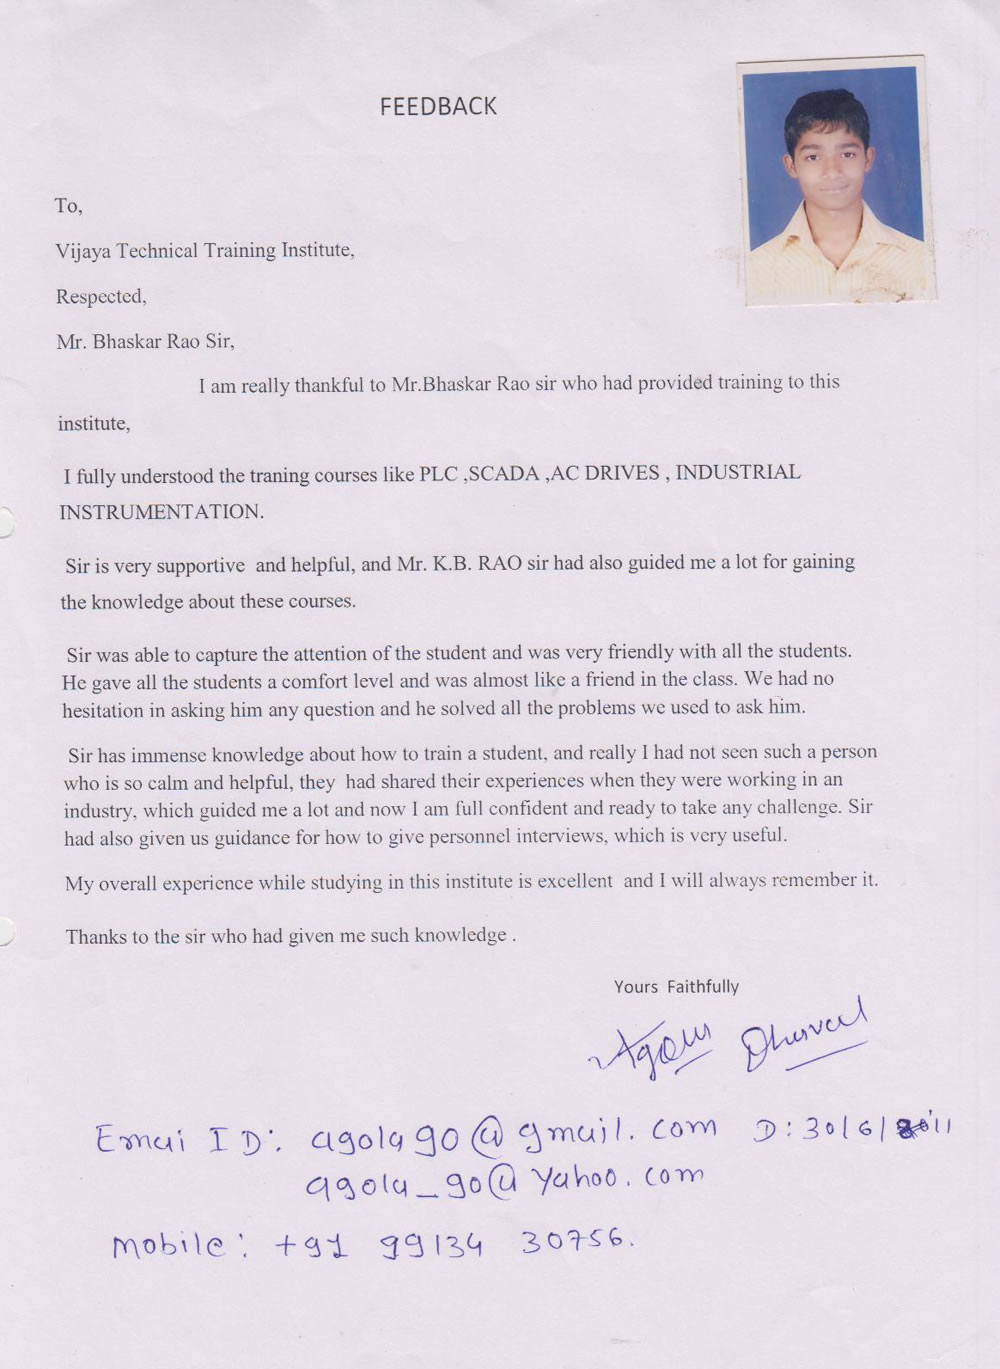 FEEDBACK
To,
Vijaya Technical Training Institute,
Respected,
Mr. Bhaskar Rao Sir,
I am really thankful to Mr.Bhaskar Rao sir who had provided training to this
institute,
I fully understood the traning courses like PLC ,SCADA ,AC DRIVES , INDUSTRIAL
INSTRUMENTATION.
Sir is very supportive and helpful, and Mr. K.B. RAO sir had also guided me a lot for gaining
the knowledge about these courses.
Sir was able to capture the attention of the student and was very friendly with all the students.
He gave all the students a comfort level and was almost like a friend in the class. We had no
hesitation in asking him any question and he solved all the problems we used to ask him.
Sir has immense knowledge about how to train a student, and really I had not seen such a person
who is so calm and helpful, they had shared their experiences when they were working in an
industry, which guided me a lot and now I am full confident and ready to take any challenge. Sir
had also given us guidance for how to give personnel interviews, which is very useful.
My overall experience while studying in this institute is excellent and I will always remember it.
Thanks to the sir who had given me such knowledge .
Yours Faithfully
Emai ID: agola90@gmail.com D:30/6/2011
agola_90@yahoo.com
Mobile: +91 99134 30756.